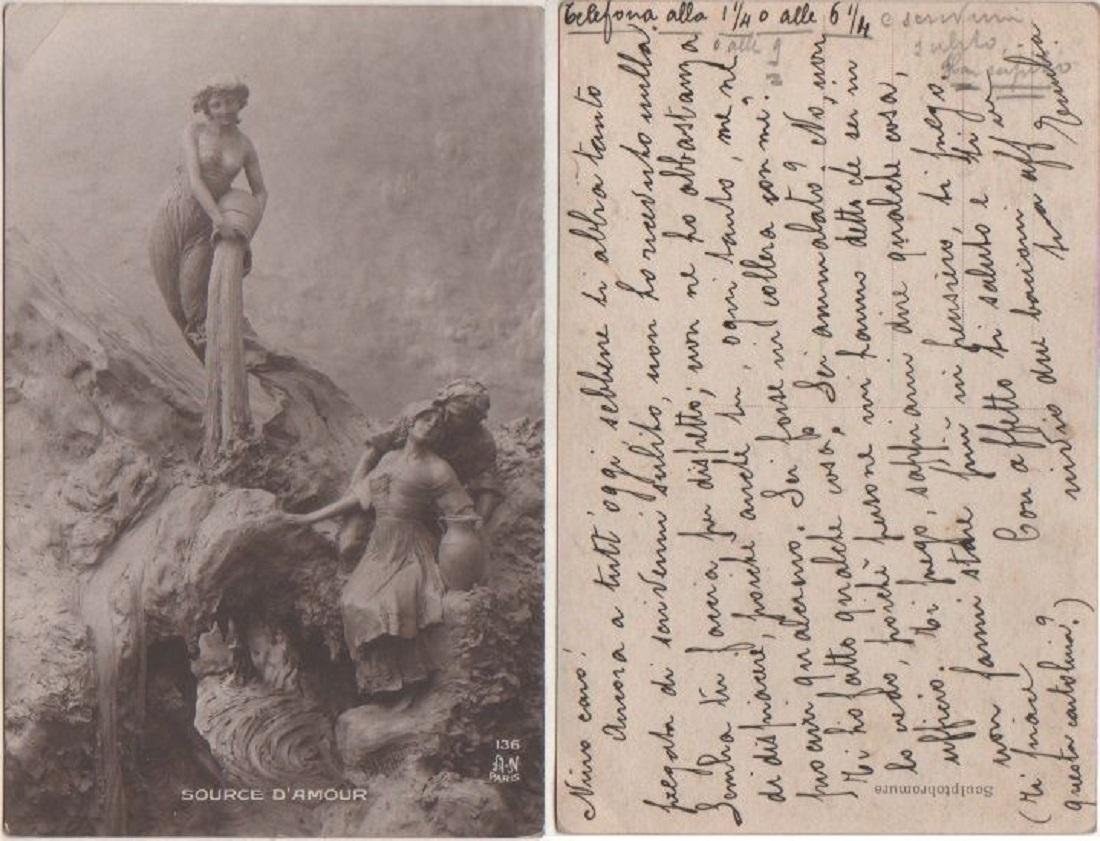 136
A·N
PARIS
SOURCE D'AMOUR
Telefona alla 1¼ o alle 6¼
o alle 9
e scrivimi
subito
Nino caro!
Ancora a tutt'oggi sebbene ti abbia tanto
pregata di scrivermi subito, non ho ricevuto nulla.
Sembra tu faccia per dispetto; non ne ho abbastanza
di dispiaceri, perché anche tu, ogni tanto, me ne
procuri qualcuno. Sei forse in collera con me?
Ti ho fatto qualche cosa? Sei ammalato? No, non
lo credo, perchè persone mi hanno detto che sei in
ufficio. Ti prego, sappimi dire qualche cosa,
non farmi stare più in pensiero, ti prego
Con affetto ti saluto e ti
invio due bacioni aff
tua
(Ti piace
questa cartolina?)
Sculptobromure